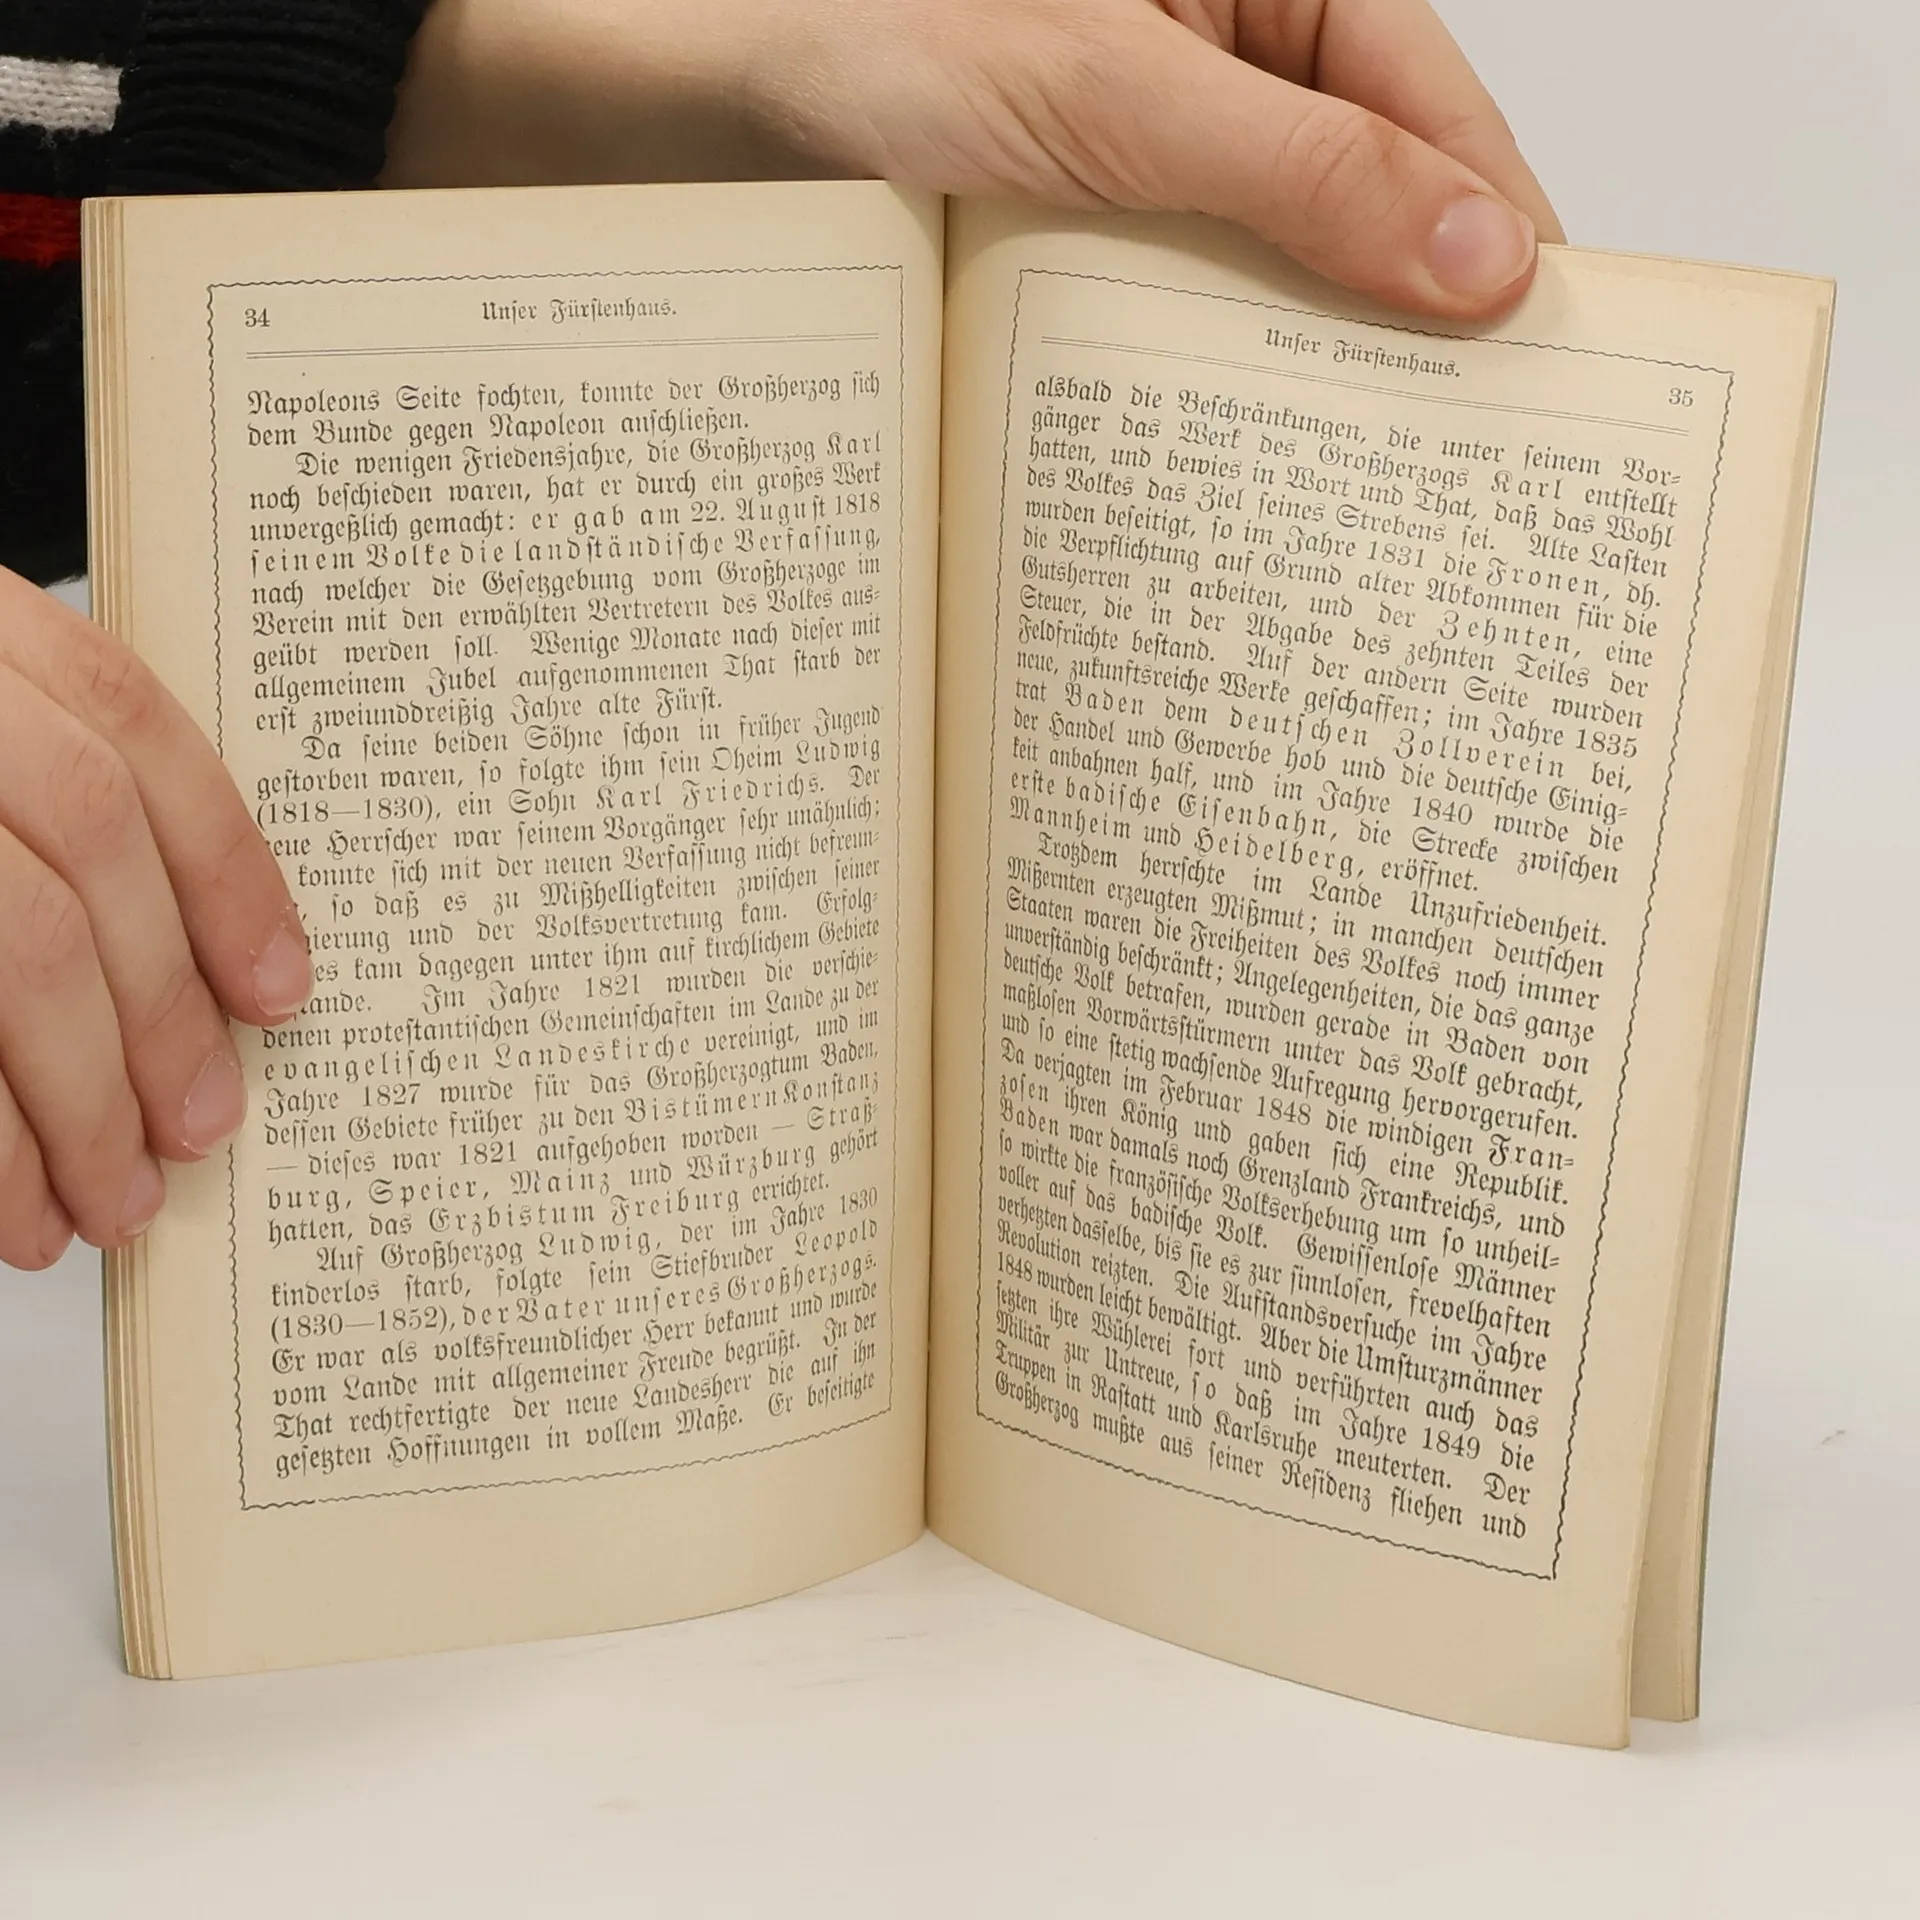 34
Unſer Fürſtenhaus.
Napoleons Seite fochten, konnte der Großherzog ſich
dem Bunde gegen Napoleon anſchließen.
Die wenigen Friedensjahre, die Großherzog Karl
noch beſchieden waren, hat er durch ein großes Werk
unvergeßlich gemacht: er gab am 22. Auguſt 1818
ſeinem Volke die landſtändiſche Verfaſſung,
nach welcher die Geſetzgebung vom Großherzoge im
Verein mit den erwählten Vertretern des Volkes aus-
geübt werden ſoll. Wenige Monate nach dieſer mit
allgemeinem Jubel aufgenommenen That ſtarb der
erſt zweiunddreißig Jahre alte Fürſt.
Da ſeine beiden Söhne ſchon in früher Jugend
geſtorben waren, ſo folgte ihm ſein Oheim Ludwig
(1818—1830), ein Sohn Karl Friedrichs. Der
neue Herrſcher war ſeinem Vorgänger ſehr unähnlich;
konnte ſich mit der neuen Verfaſſung nicht befreun-
, ſo daß es zu Mißhelligkeiten zwiſchen ſeiner
gierung und der Volksvertretung kam. Erfolg-
es kam dagegen unter ihm auf kirchlichem Gebiete
ſtande. Im Jahre 1821 wurden die verſchie-
denen proteſtantiſchen Gemeinſchaften im Lande zu der
evangeliſchen Landeskirche vereinigt, und im
Jahre 1827 wurde für das Großherzogtum Baden,
deſſen Gebiete früher zu den Bistümern Konſtanz
— dieſes war 1821 aufgehoben worden — Straß-
burg, Speier, Mainz und Würzburg gehört
hatten, das Erzbistum Freiburg errichtet.
Auf Großherzog Ludwig, der im Jahre 1830
kinderlos ſtarb, folgte ſein Stiefbruder Leopold
(1830—1852), der Vater unſeres Großherzogs.
Er war als volksfreundlicher Herr bekannt und wurde
vom Lande mit allgemeiner Freude begrüßt. In der
That rechtfertigte der neue Landesherr die auf ihn
geſetzten Hoffnungen in vollem Maße. Er beſeitigte
Unſer Fürſtenhaus.
35
alsbald die Beſchränkungen, die unter ſeinem Vor-
gänger das Werk des Großherzogs Karl entſtellt
hatten, und bewies in Wort und That, daß das Wohl
des Volkes das Ziel ſeines Strebens ſei. Alte Laſten
wurden beſeitigt, ſo im Jahre 1831 die Fronen, dh.
die Verpflichtung auf Grund alter Abkommen für die
Gutsherren zu arbeiten, und der Zehnten, eine
Steuer, die in der Abgabe des zehnten Teiles der
Feldfrüchte beſtand. Auf der andern Seite wurden
neue, zukunftsreiche Werke geſchaffen; im Jahre 1835
trat Baden dem deutſchen Zollverein bei,
der Handel und Gewerbe hob und die deutſche Einig-
keit anbahnen half, und im Jahre 1840 wurde die
erſte badiſche Eiſenbahn, die Strecke zwiſchen
Mannheim und Heidelberg, eröffnet.
Trotzdem herrſchte im Lande Unzufriedenheit.
Mißernten erzeugten Mißmut; in manchen deutſchen
Staaten waren die Freiheiten des Volkes noch immer
unverſtändig beſchränkt; Angelegenheiten, die das ganze
deutſche Volk betrafen, wurden gerade in Baden von
maßloſen Vorwärtsſtürmern unter das Volk gebracht,
und ſo eine ſtetig wachſende Aufregung hervorgerufen.
Da verjagten im Februar 1848 die windigen Fran-
zoſen ihren König und gaben ſich eine Republik.
Baden war damals noch Grenzland Frankreichs, und
ſo wirkte die franzöſiſche Volkserhebung um ſo unheil-
voller auf das badiſche Volk. Gewiſſenloſe Männer
verhetzten dasſelbe, bis ſie es zur ſinnloſen, frevelhaften
Revolution reizten. Die Aufſtandsverſuche im Jahre
1848 wurden leicht bewältigt. Aber die Umſturzmänner
ſetzten ihre Wühlerei fort und verführten auch das
Militär zur Untreue, ſo daß im Jahre 1849 die
Truppen in Raſtatt und Karlsruhe meuterten. Der
Großherzog mußte aus ſeiner Reſidenz fliehen und